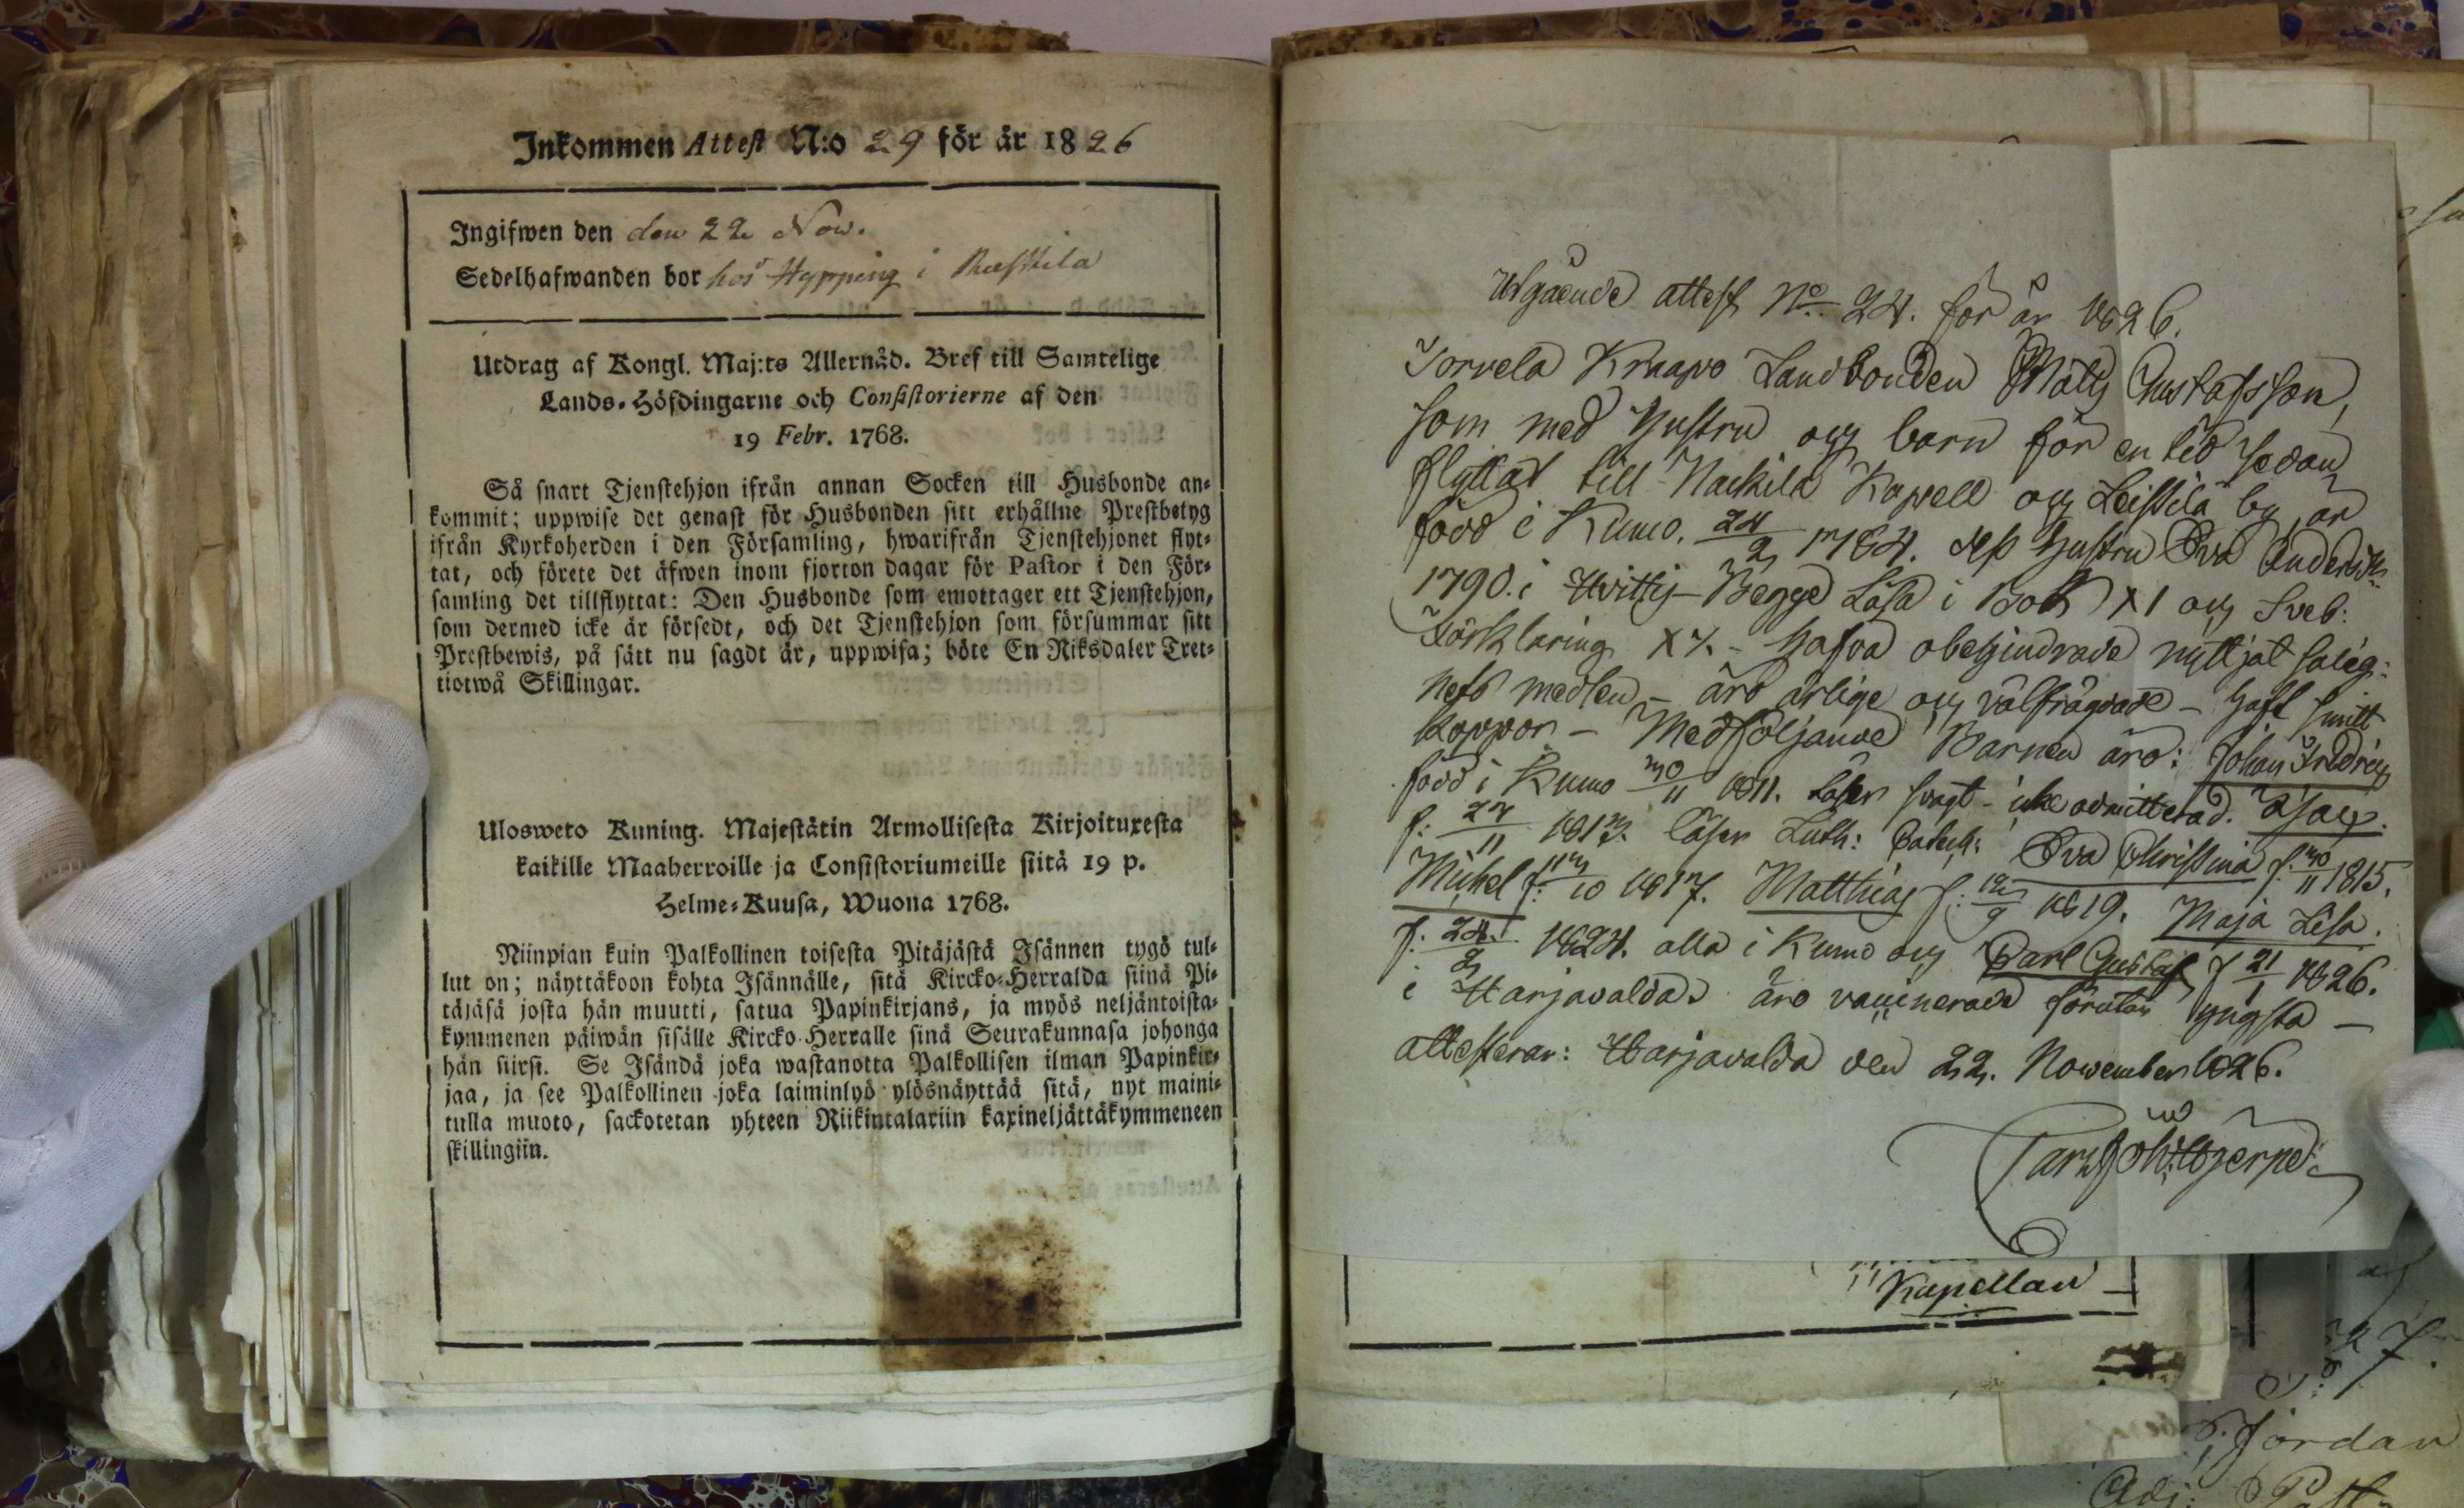 Inkommen Attest N:o 29 för år 1826
Ingifwen den den 22 Nov.
Sedelhafwanden bor hos Hypping i
Utdrag af Kongl. Maj:ts Allernåd. Bref till Samtelige
Lands-Höfdingarne och Consistorierne af den
19 Febr. 1768.
Så snart Tjenstehjon ifrån annan Socken till Husbonde an-
kommit; uppwise det genast för Husbonden sitt erhållne Prestbetyg
ifrån Kyrkoherden i den Församling, hwarifrån Tjenstehjonet flyt-
tat, och förete det äfwen inom fjorton dagar för Pastor i den För-
samling det tillflyttat: Den Husbonde som emottager ett Tjenstehjon,
som dermed icke är försedt, och det Tjenstehjon som försummar sitt
Prestbewis, på sätt nu sagdt är, uppwisa; böte En Riksdaler Tret-
tiotwå Skillingar.
Ulosweto Kuning. Majestätin Armollisesta Kirjoituxesta
kaikille Maaherroille ja Consistoriumeille siitä 19 p.
Helme-Kuusa, Wuona 1768.
Niinpian kuin Palkollinen toisesta Pitäjästä Isännen tygö tul-
lut on; näyttäkoon kohta Isännälle, sitä Kircko-Herralda siinä Pi-
täjäsä josta hän muutti, satua Papinkirjans, ja myös neljäntoista-
kymmenen päiwän sisälle Kircko-Herralle sinä Seurakunnasa johonga
hän siirsi. Se Isändä joka wastanotta Palkollisen ilman Papinkir-
jaa, ja see Palkollinen joka laiminlyö ylösnäyttää sitä, nyt maini-
tulla muoto, sackotetan yhteen Riikintalariin kaxineljättäkymmeneen
skillingiin.
Utgående attest No 24. för år 1826.
Torvela Knaapo Landbonden Matts Gustafsson,
som med hustru och barn för en tid sedan
flyttat till Nackila Kapell och Leistila by, är
född i Kumo 24/2 1784. dess hustru Eva Andersdr
1790. i Hvittis - Begge Läsa i Bok X1 och Sveb:
Förklaring X7. - hafva obehindrade nyttjat salig:
hets medlen - äro ärlige och välfrägdade - haft smitt
koppor - Medföljande Barnen äro: Johan Fredric
född i Kumo 30/11 1811. läser svagt - icke admitterad. Isac.
f. 27/11 1813. läser Luth: Catech: Eva Christina f. 30/11 1815.
Michel f: 10 1817. Matthias f: 12/9 1819. Maja Lisa.
f. 24/2 1824. alla i Kumo och Carl Gustaf f 21/1 1826.
i Harjavalda. äro vaccinerade förutan yngsta -
attesterar: Harjavalda den 22. November 1826.
Kapellan
Jordan
Adj: